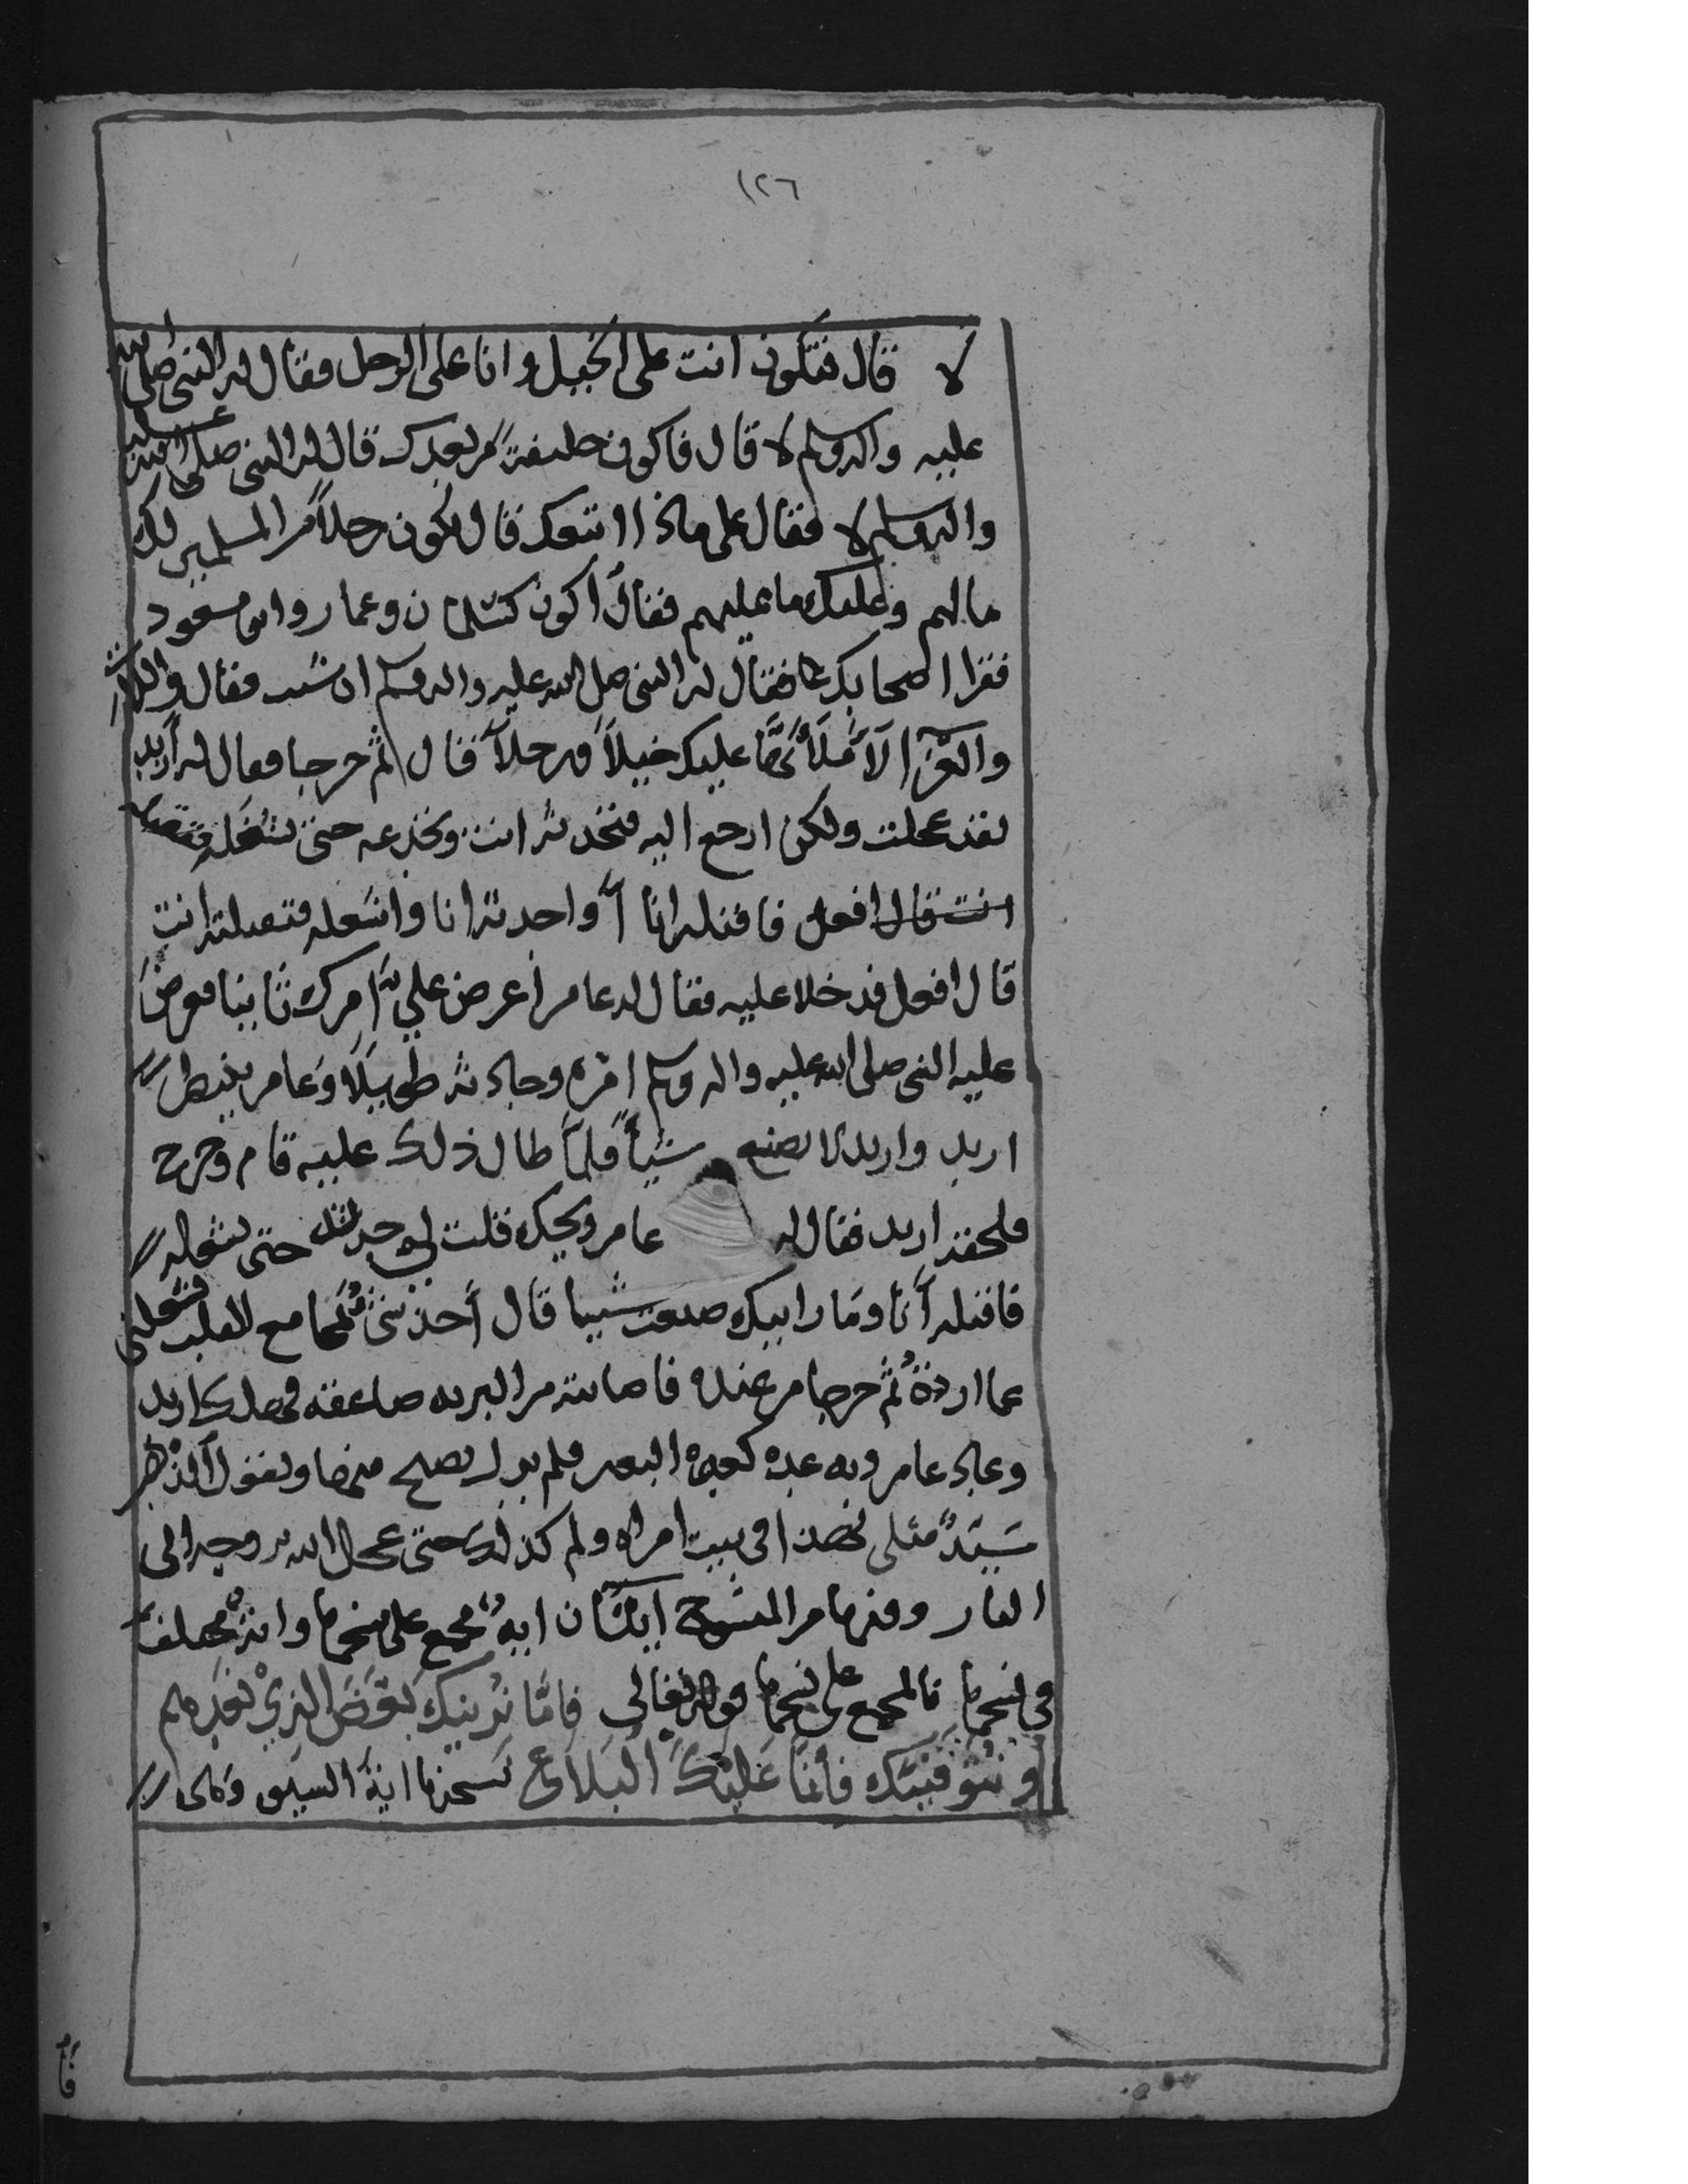 ١٢٦
لا قال فتكون انت على الخيل وانا على الرجل فقال له النبي صلى الله
عليه واله وسلم لا قال فاكون خليفة من بعدك قال له النبي صلى الله عليه
واله وسلم لا فقال على ماذا اتبعك قال تكون رجلاً من المسلمين لك
ما لهم وعليك ما عليهم فقال أكون كسلمان وعمار وابن مسعود
فقرا اصحابك فقال له النبي صلى الله عليه واله وسلم ان شئت فقال واللات
والعزا لَأَمْلَأَنَّها عليك خيلاً ورجلاً قال ثم خرجا فقال له أربد
لقد عجلت ولكن ارجع اليه فتحدثه انت وتخدعه حتى تشغله فتقتله
انت قال افعل فاقتله انا أو احدثه انا واشغله فتقتله انت
قال افعل فدخلا عليه فقال له عامر أعرض علي أمرك ثانيا فعرض
عليه النبي صلى الله عليه واله وسلم امره وحادثه طويلًا وعامر ينتظر
اربد واربد لا يصنع شيأ فلمّا طال ذلك عليه قام وخرج
فلحقه اربد فقال له عامر ويحك قلت لي حدثه حتى تشغله
فاقتله أنا وما رايتك صنعت شييا قال أخذتني مجامع لا قلب فشغلني
عما اردة ثم خرجا من عنده فاصابته من البريه صاعقه فهلك اربد
وعاد عامر وبه غده كغدة البعير فلم يزل يصيح منها ويقول
سيّدٌ مثلى في بيت امراه ولم كذلك حتى عجل الله بروحه الى
النار وفيها من المنسوخ ايتان ايةٌ مجمع على نسخها وايةٌ مختلف
في نسخها فالمجمع على نسخها قوله تعالى فامّا نرينك بعض الذي نعدهم
او نتوفينك فأنما عليك البلاغ نسخها اية السيف
فا